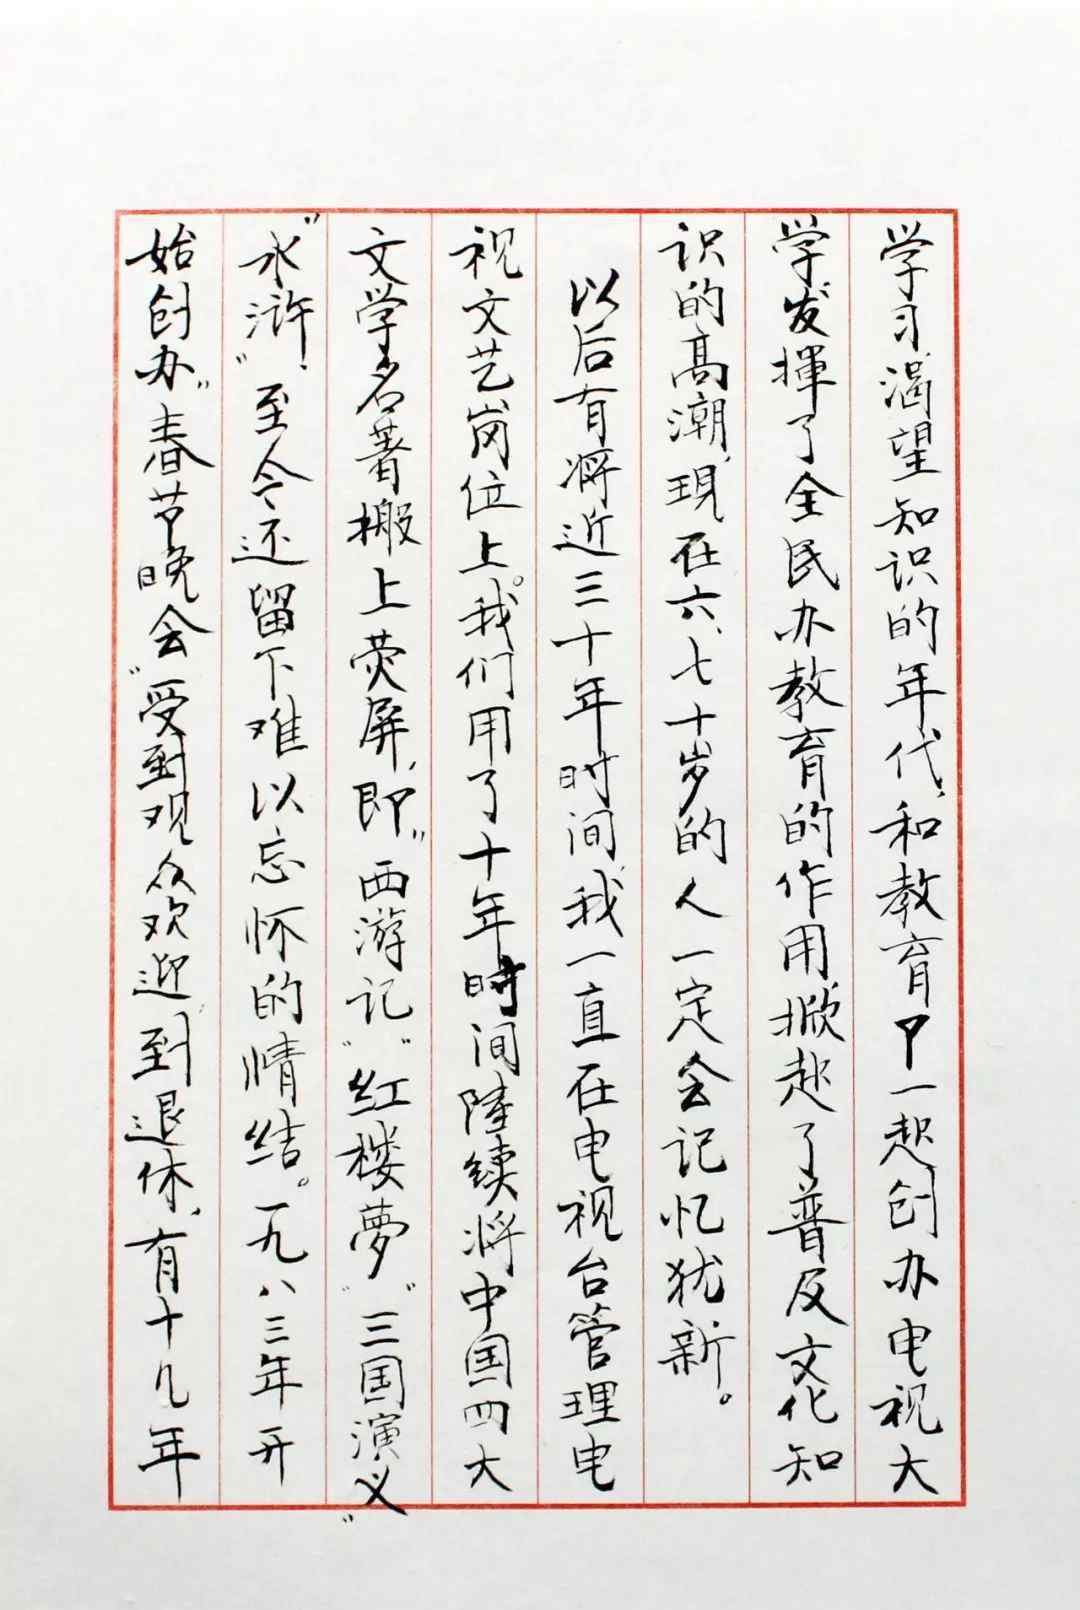 学习,渴望知识的年代,和教育卩一起创办电视大
学,发揮了全民办教育的作用,掀起了普及文化知
识的高潮,現在六、七十岁的人一定会记忆犹新。
以后有将近三十年时间,我一直在电视台管理电
视文艺岗位上。我们用了十年时间陸续将中国四大
文学名著搬上荧屏,即"西游记""红楼夢""三国演义"
"水浒",至今还留下难以忘怀的情结。一九八三年开
始创办"春节晚会"受到观众欢迎,到退休,有十几年